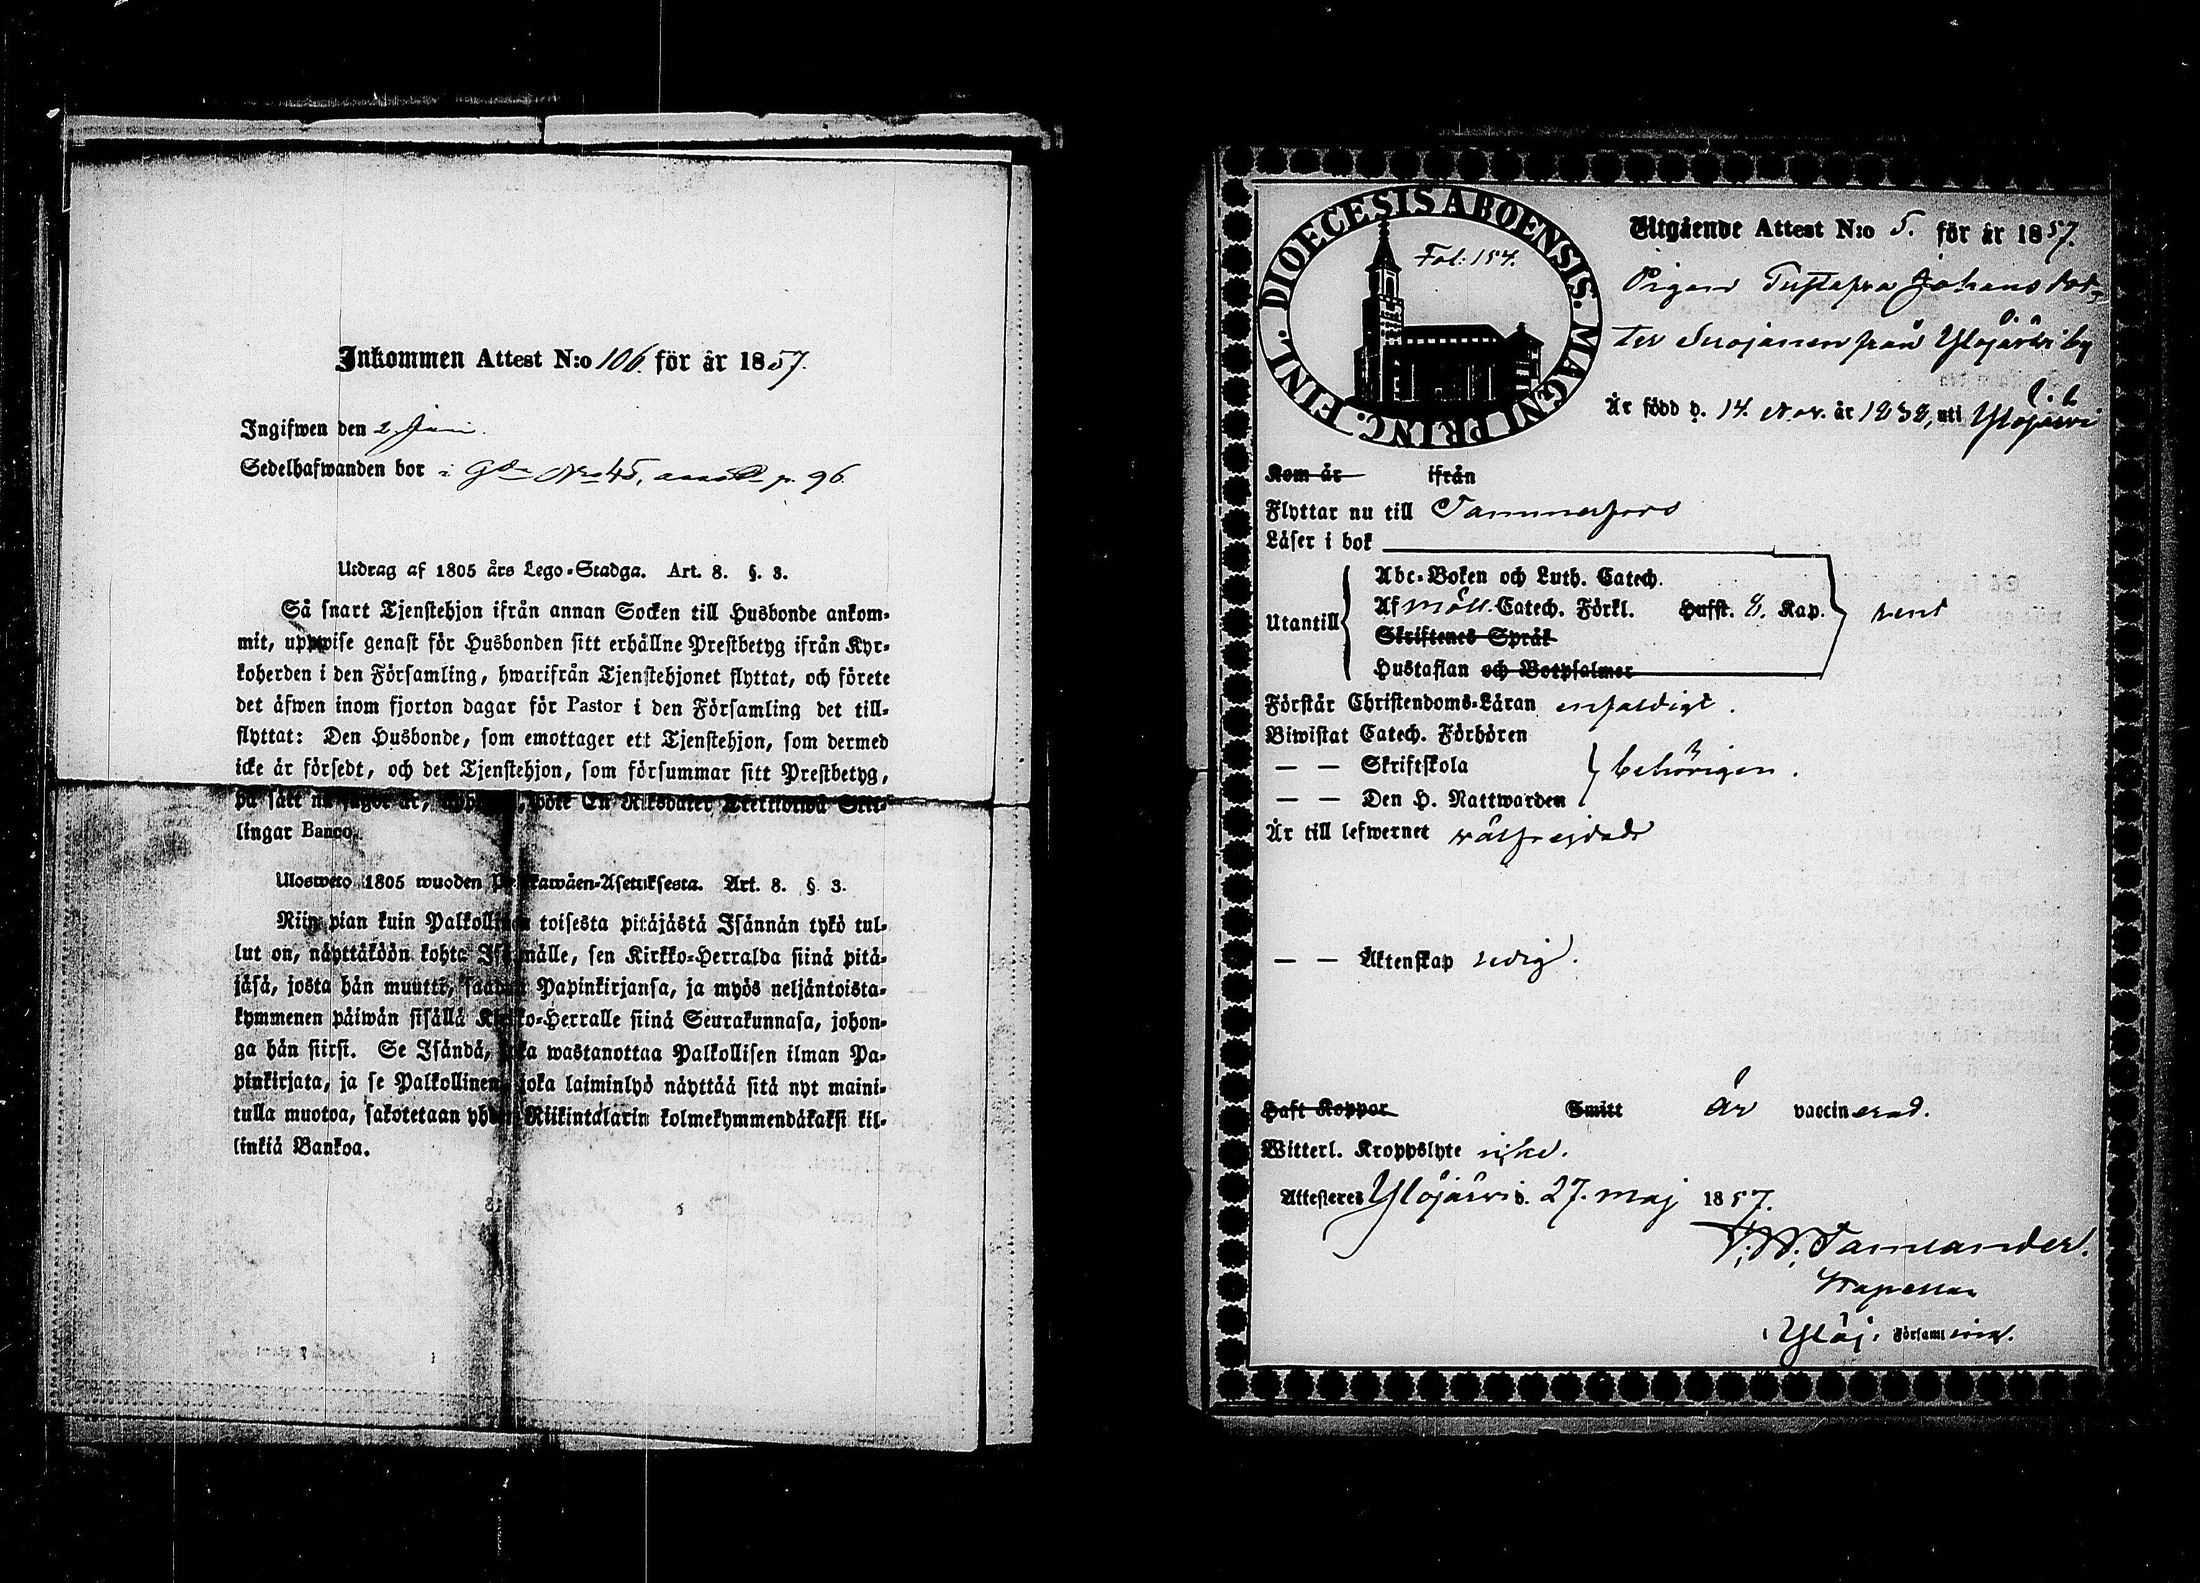 Inkommen Attest N:o 106. för år 1857.
Ingifwen den 2 Juni.
Sedelhafwanden bor i Gdn No 45, p. 96.
Utdrag af 1805 års Lego-Stadga. Art. 8. §. 3.
Så snart Tjenstehjon ifrån annan Socken till Husbonde ankom-
mit, uppwise genast för Husbonden sitt erhållne Prestbetyg ifrån Kyr-
koherden i den Församling, hwarifrån Tjenstehjonet flyttat, och förete
det äfwen inom fjorton dagar för Pastor i den Församling det till-
flyttat: Den Husbonde, som emottager ett Tjenstehjon, som dermed
icke är försedt, och det Tjenstehjon, som försummar sitt Prestbetyg,
på sätt nu sagdt är, wöte En Riksdaler Trettiotwå Skil-
lingar Banco.
Ulosweto 1805 wuoden Asetuksesta. Art. 8. § 3.
Niin pian kuin Palkollinen toisesta pitäjästä Isännän tykö tul-
lut on, näyttäköön kohta Isännälle, sen Kirkko-Herralda siinä pitä-
jäsä, josta hän muutti, saadun Papinkirjansa, ja myös neljäntoista-
kymmenen päiwän sisällä Kirkko-Herralle siinä Seurakunnasa, johon-
ga hän siirsi. Se Isändä, joka wastanottaa Palkollisen ilman Pa-
pinkirjata, ja se Palkollinen, joka laiminlyö näyttää sitä nyt maini-
tulla muotoa, sakotetaan yhden Riikintalarin kolmekymmendäkaksi kil-
linkiä Bankoa.
DIOECESIS ABOENSIS. MAGNI PRINC. FINL.
Fol: 154.
Utgående Attest N:o 5. för år 1857.
Pigan Gustafva Johansdot-
ter från Ylöjärvi by
Är född d. 14. Nov. år 1838, uti Ylöjärvi
Kom år ifrån
Flyttar nu till Tammerfors
Läser i bok
Abc-Boken och Luth. Catech.
Utantill Af Möll. Catech. Förkl. Hufst. 8. Kap. rent
Skriftenes Språk
Hustaflan och Botpsalmer
Förstår Christendoms-Läran enfaldigt.
Biwistat Catech. Förhören
— — Skriftskola behörigen.
— — Den H. Nattwarden
Är till lefwernet wälfrejdad
— — Äktenskap ledig.
Haft Koppor Smitt är vaccinerad.
Witterl. Kroppslyte icke.
Attesteres Ylöjärwi d. 27. maj 1857.
Kapellan
i Ylöj. Församling.